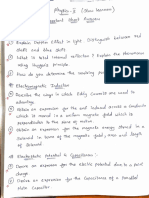 Physics-II (Slow learners)
Important short Answers
① Explain Doppler Effect in light. Distinguish between red shift and blue shift.
② What is total internal reflection? Explain the phenomena using Huygen's principle.
③ How do you determine the resolving power
Electromagnetic Induction
① Describe the ways in which Eddy currents are used to advantage.
② Obtain an expression for the emf induced across a conductor which is moved in a uniform magnetic field which is perpendicular to the plane of motion.
③ Obtain an expression for the magnetic energy stored in a solenoid in terms of magnetic field
Electrostatic Potential & Capacitance:
① Derive an expression for the electric potential due to a point charge
② Derive an expression for the Capacitance of a Parallel plate Capacitor